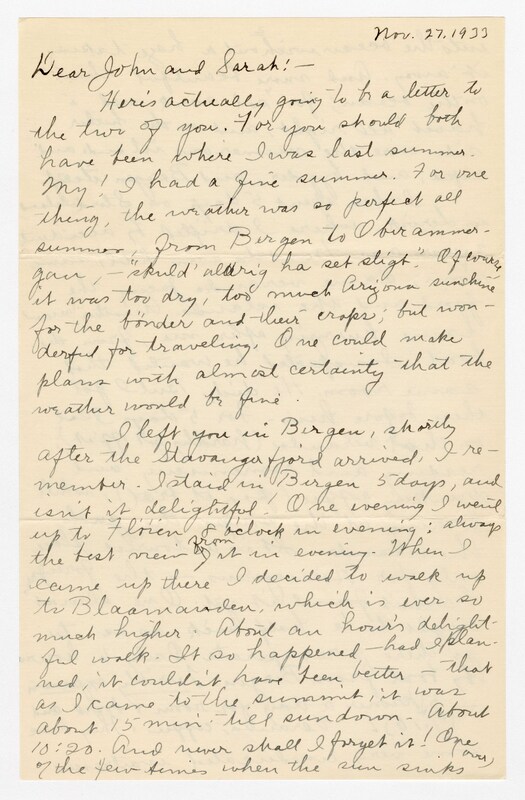 Nov. 27, 1933
Dear John and Sarah! —
Here's actually going to be a letter to
the two of you. For you should both
have been where I was last summer.
My! I had a fine summer. For one
thing, the weather was so perfect all
summer, from Bergen to Oberammer-
gau, — "skuld' aldrig ha set sligt". Of course,
it was too dry, too much Arizona sunshine
for the bönder and their crops; but won-
derful for traveling. One could make
plans with almost certainty that the
weather would be fine.
I left you in Bergen, shortly
after the Stavangerfjord arrived, I re-
member. I staid in Bergen 5 days, and
isn't it delightful! One evening I went
up to Flöien, 8 o'clock in evening; always
the best view from it in evening. When I
came up there I decided to walk up
to Blaamanden, which is ever so
much higher. About an hour's delight-
ful walk. It so happened — had I plan-
ned, it couldn't have been better — that
as I came to the summit, it was
about 15 min. till sundown. About
10:20. And never shall I forget it! One
of the few times when the sun sinks
(over)